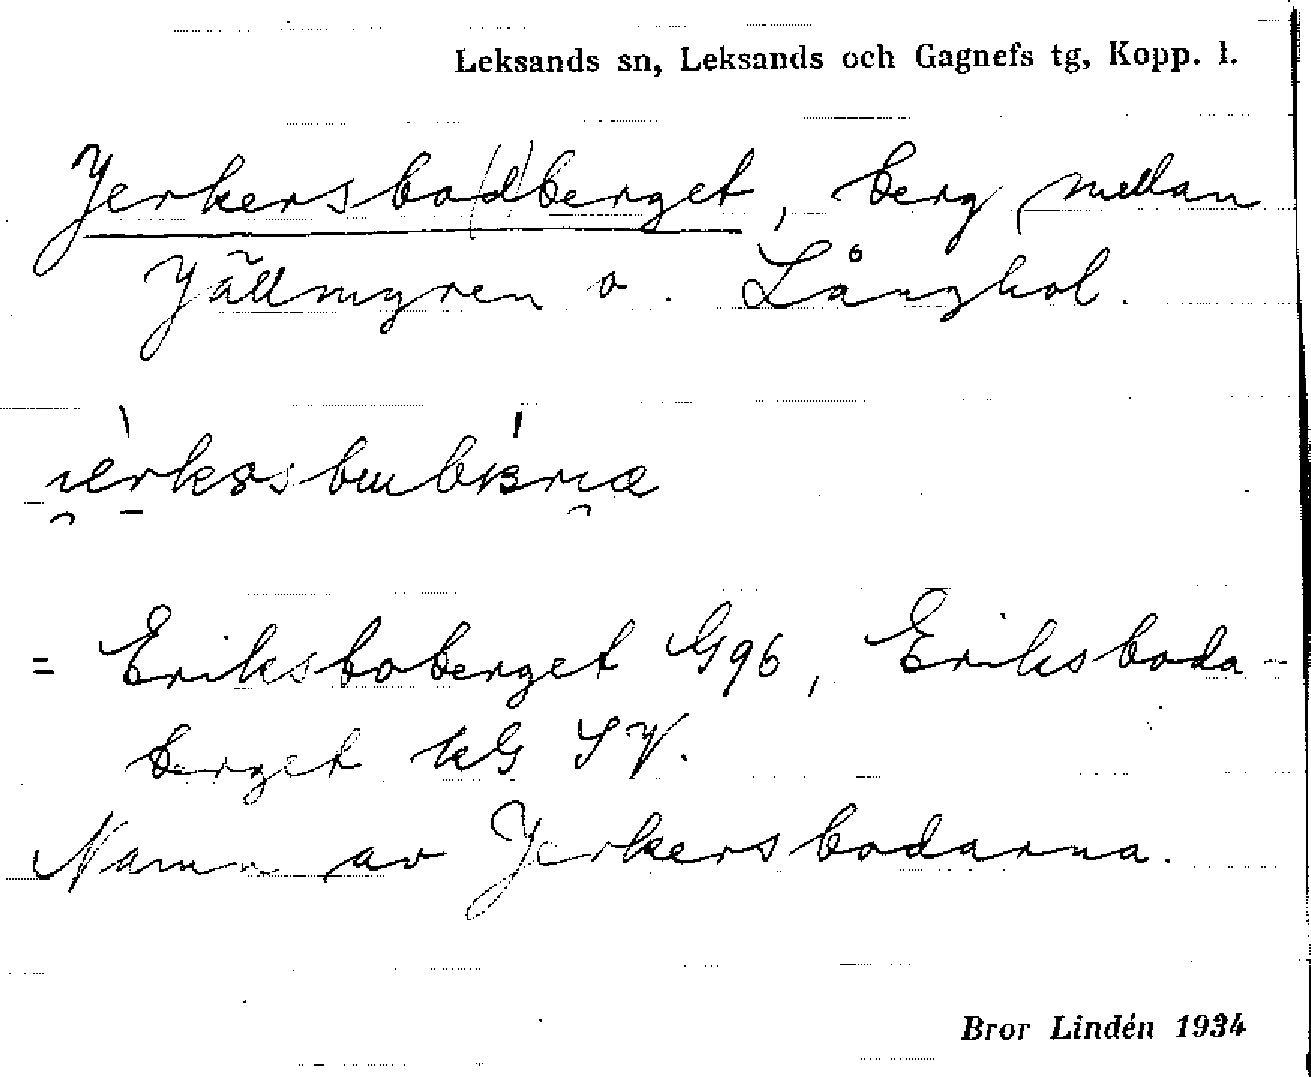 Leksands sn, Leksands och Gagnefs tg, Kopp. l.
Jerkersbo(d)berget, berg mellan
Jällmyren o. Långkol.
= Eriksboberget G96, Eriksboda-
berget kG SV.
Namn av Jerkersbodarna.
Bror Lindén 1934